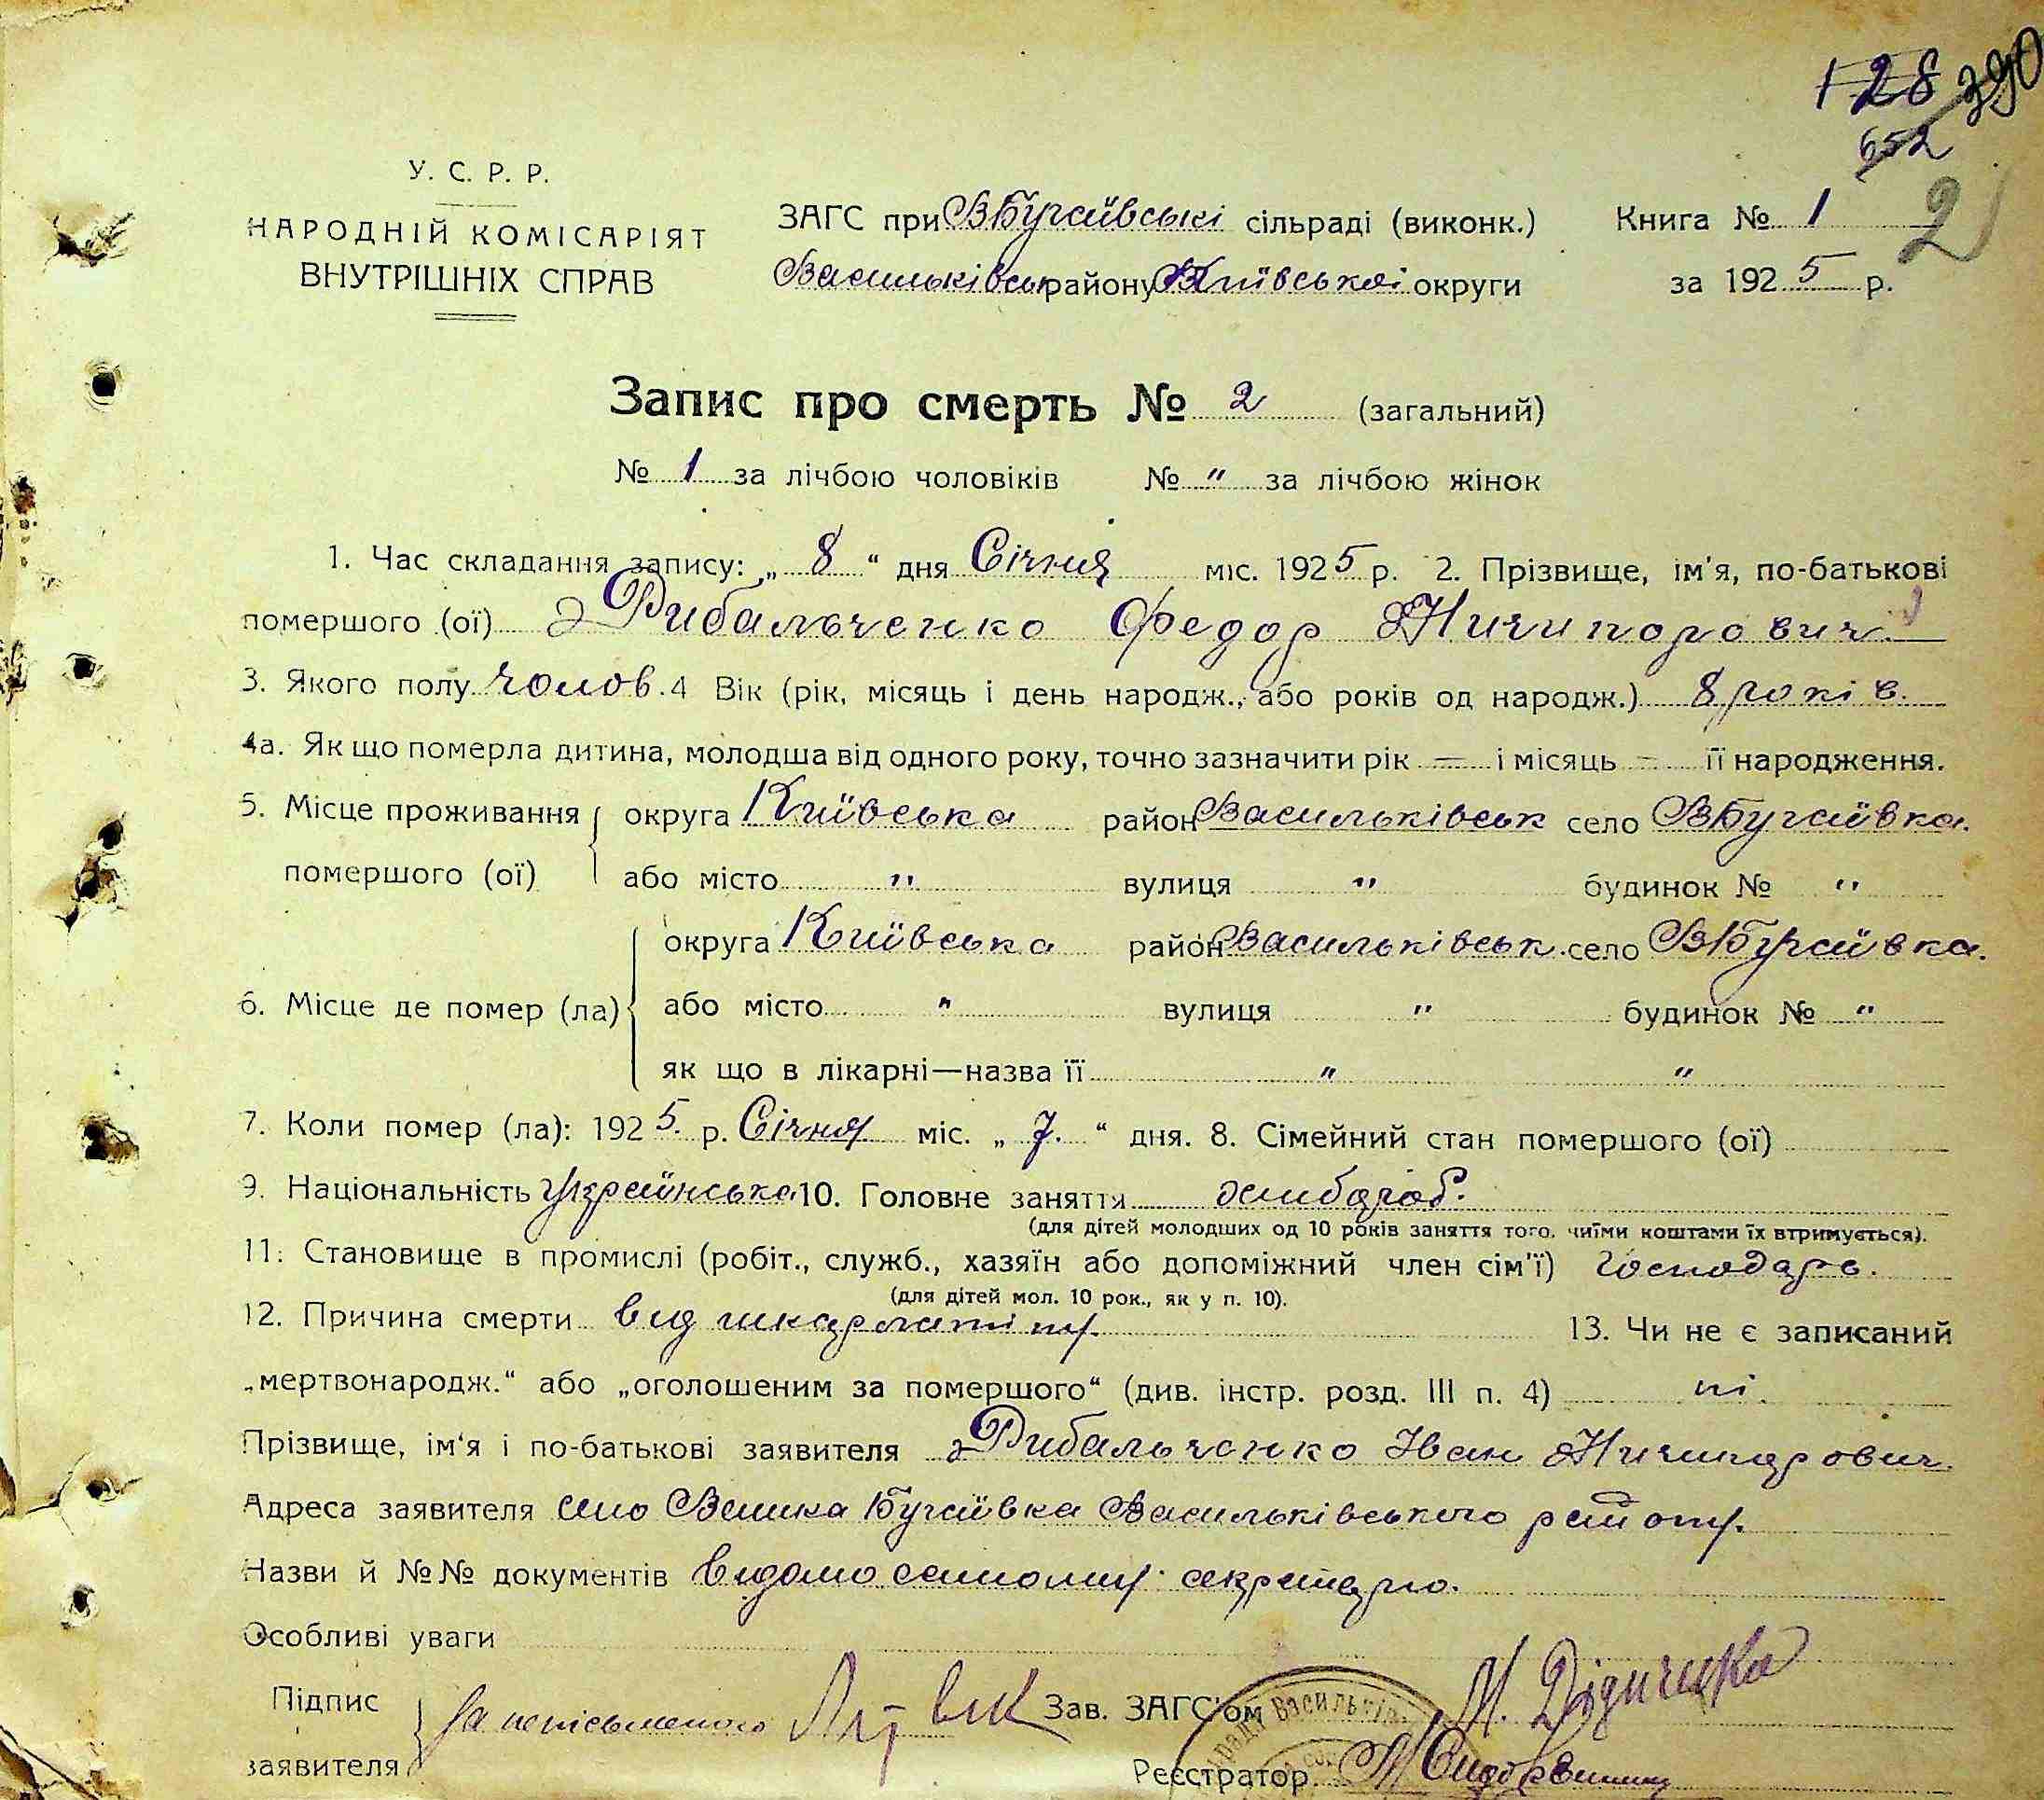 128 390
652
У. С. Р. Р.
НАРОДНІЙ КОМІСАРІЯТ
ВНУТРІШНІХ СПРАВ
ЗАГС при ВБугаївські сільраді (виконк.)
Васильківськ району Київської округи
Книга № 1 2
за 1925 р.
Запис про смерть № 2 (загальний)
№ 1 за лічбою чоловіків № " за лічбою жінок
1. Час складання запису: „ 8 “ дня Січня міс. 1925 р. 2. Прізвище, ім'я, по-батькові
помершого (ої) Рибальченко Федор Ничипорович
3. Якого полу чолов. 4 Вік (рік, місяць і день народж., або років од народж.) 8 років.
4а. Як що померла дитина, молодша від одного року, точно зазначити рік — і місяць — її народження.
5. Місце проживання { округа Київська район Васильківськ село ВБугаївка.
помершого (ої) або місто " вулиця " будинок № "
округа Київська район Васильківськ. село ВБугаївка.
6. Місце де помер (ла) { або місто " вулиця " будинок № "
як що в лікарні—назва її " "
7. Коли помер (ла): 1925. р. Січня міс. „ 7. “ дня. 8. Сімейний стан помершого (ої)
9. Національність Українська 10. Головне заняття хлібороб.
(для дітей молодших од 10 років заняття того, чиїми коштами їх втримується).
11. Становище в промислі (робіт., служб., хазяїн або допоміжний член сім'ї) господарь.
(для дітей мол. 10 рок., як у п. 10).
12. Причина смерти вид шкарлатіни. 13. Чи не є записаний
„мертвонародж.“ або „оголошеним за помершого“ (див. інстр. розд. III п. 4) ні.
Прізвище, ім'я і по-батькові заявителя Рибальченко Іван Ничипорович.
Адреса заявителя село Велика Бугаївка Васильківського району.
Назви й №№ документів видомо самому секретарю.
Особливі уваги
Підпис
заявителя
За неписьменого
Зав. ЗАГС'ом М. Дідиченко
Реєстратор